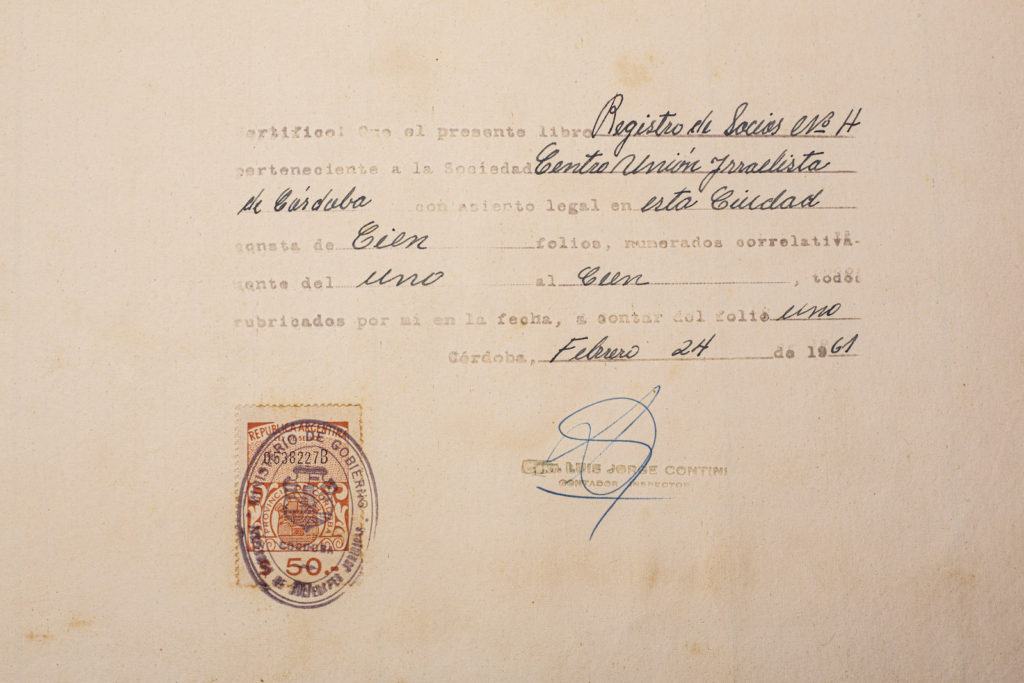 ertifico: Que el presente libro Registro de Socios Nº 4
perteneciente a la Sociedad Centro Unión Israelista
de Córdoba con asiento legal en esta Ciudad
consta de Cien folios, numerados correlativa-
mente del uno al Cien, todos
rubricados por mi en la fecha, a contar del folio uno
Córdoba, Febrero 24 de 1961
REPUBLICA ARGENTINA
0538227B
PROVINCIA DE CORDOBA
CORDOBA
50
MINISTERIO DE GOBIERNO
DE JURIDICAS
LUIS JORGE CONTINI
CONTADOR INSPECTOR